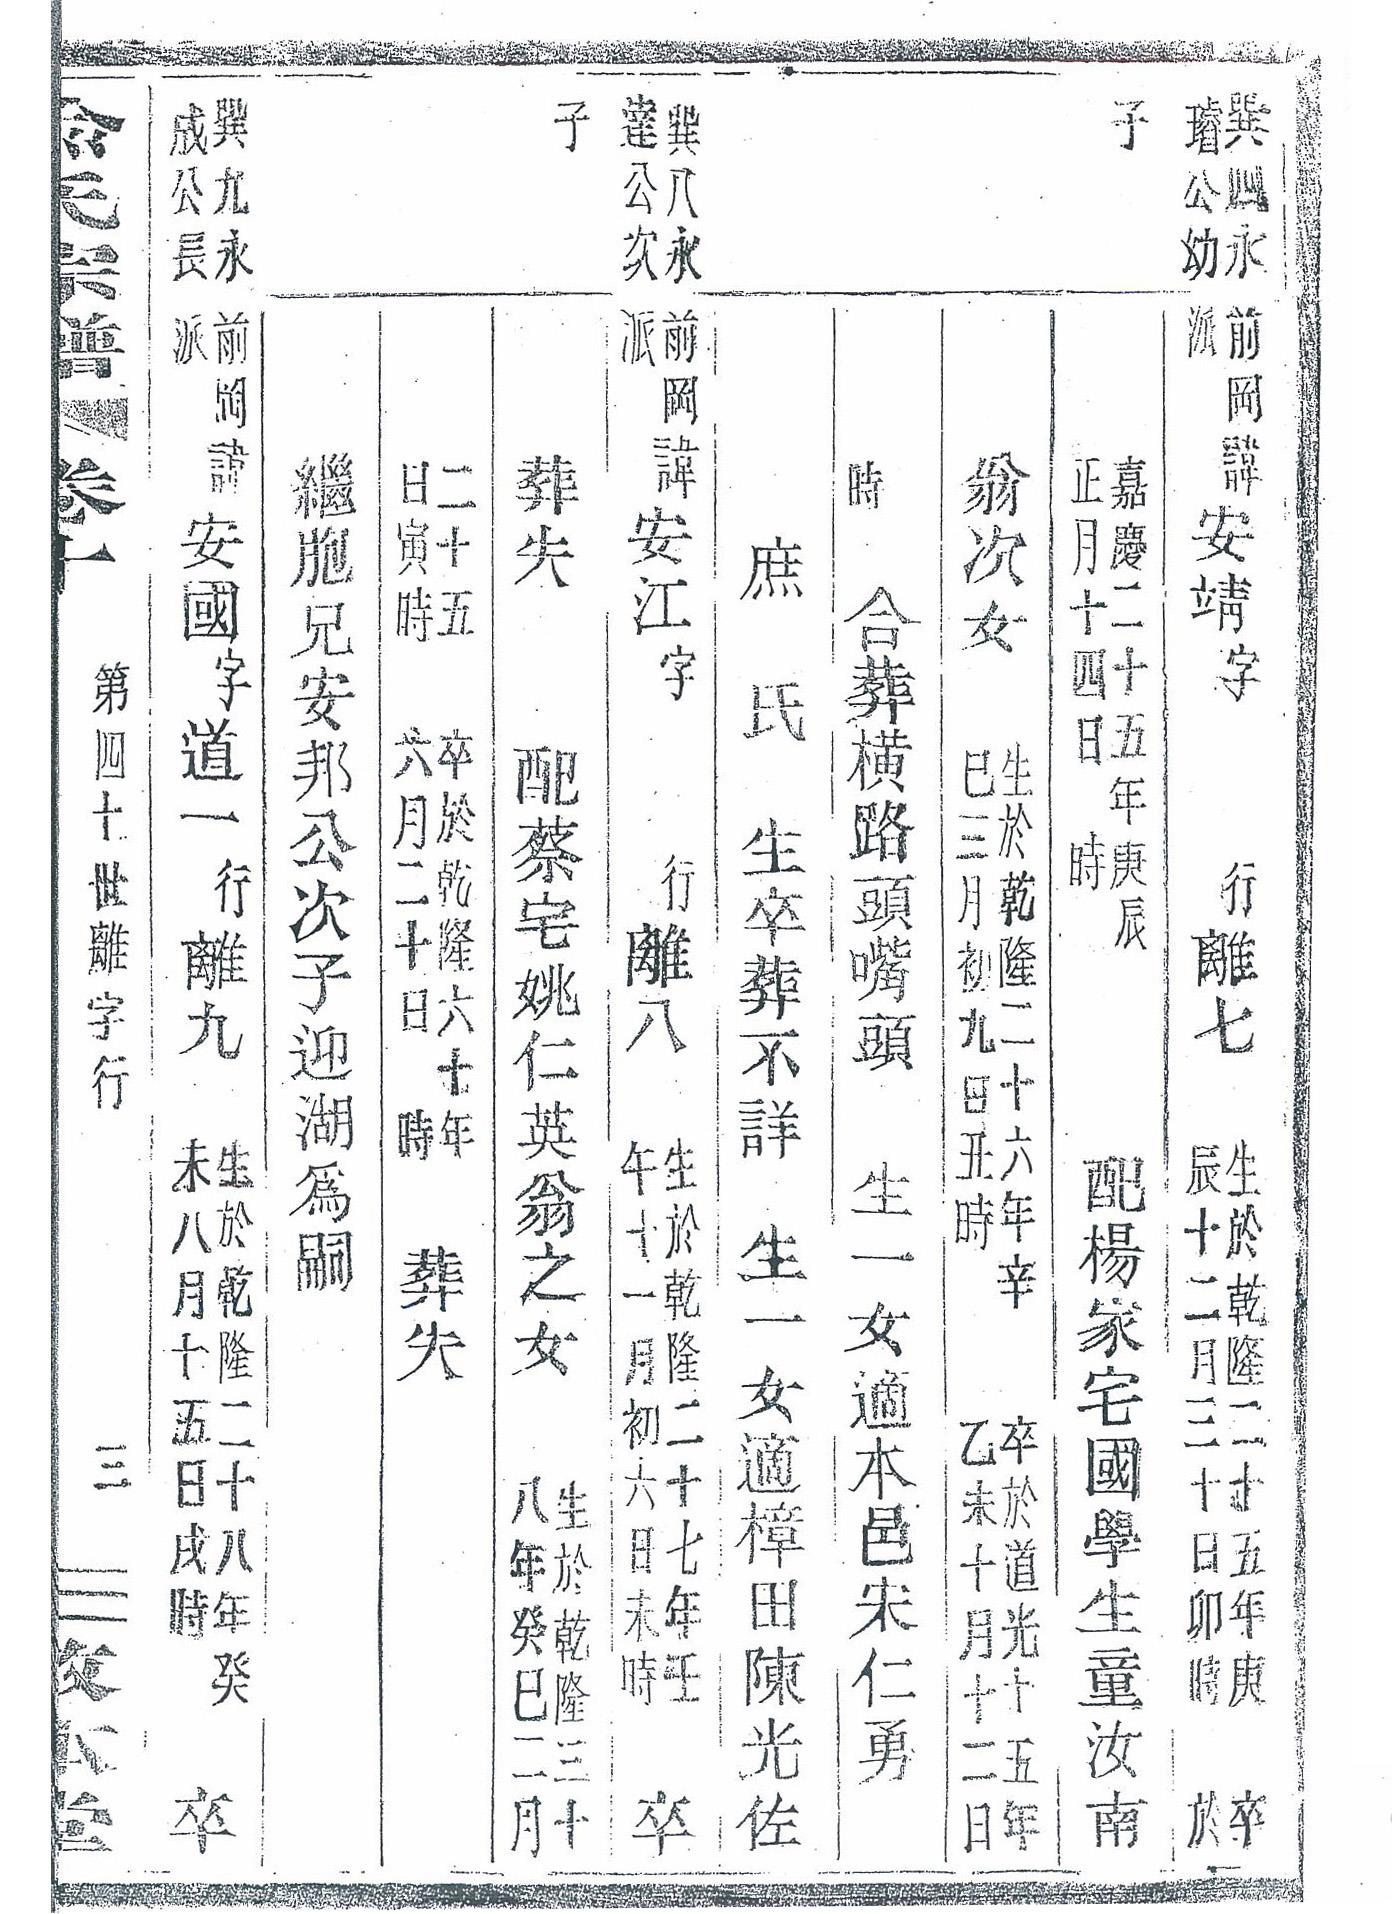 巽四永
璿公幼
子
前岡諱安靖字 行離七 生於乾隆二十五年庚
派 辰十二月三十日卯時 卒
於
嘉慶二十五年庚辰
正月十四日 時 配楊家宅國學生童汝南
翁次女 生於乾隆二十六年辛
巳三月初九日丑時 卒於道光十五年
乙未十月十二日
時 合葬橫路頭嘴頭 生一女適本邑宋仁勇
庶 氏 生卒葬不詳 生一女適樟田陳光佐
巽八永
達公次
子
前岡諱安江字 行離八 生於乾隆二十七年壬
派 午十一月初六日未時 卒
葬失 配蔡宅姚仁英翁之女 生於乾隆三十
八年癸巳二月
二十五
日寅時 卒於乾隆六十年
六月二十日 時 葬失
繼胞兄安邦公次子迎湖爲嗣
巽九永
成公長
前岡諱安國字道一 行離九 生於乾隆二十八年癸
派 未八月十五日戌時 卒
氏宗譜 卷十 第四十世離字行 三